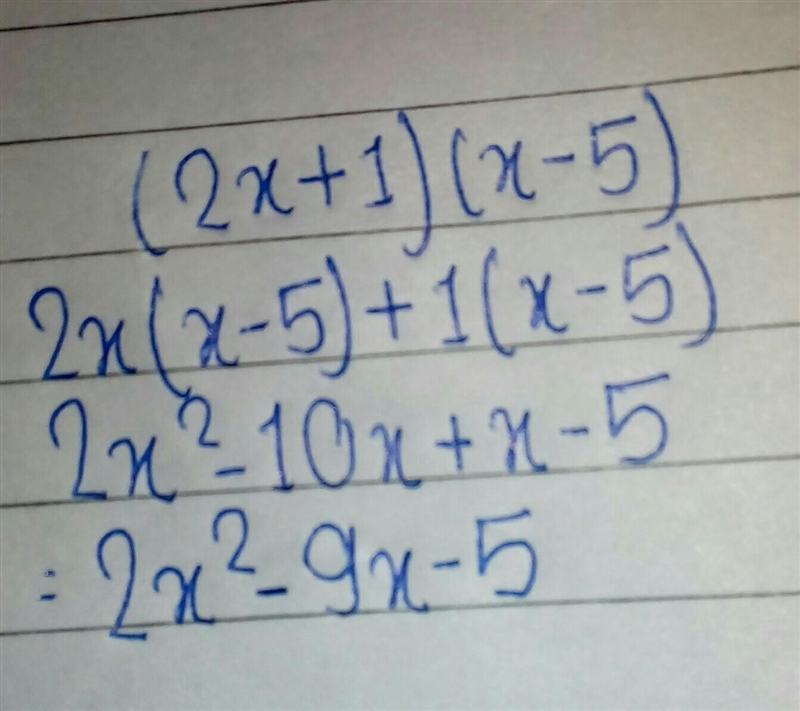 (2x+1)(x-5)
2x(x-5)+1(x-5)
2x²-10x+x-5
= 2x²-9x-5